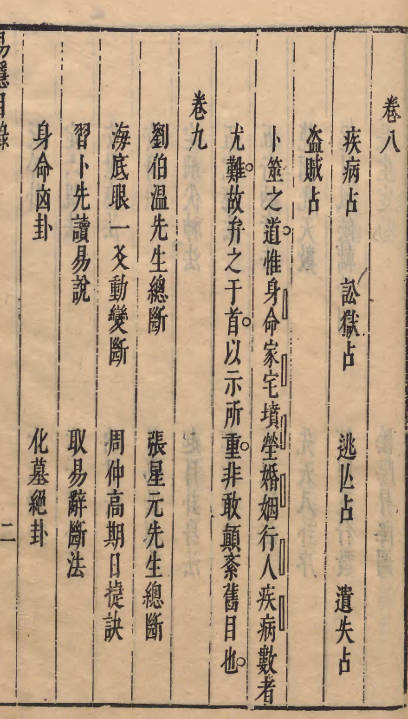 卷八
疾病占　訟獄占　逃亾占　遺失占
盗賊占
卜筮之道。惟身命家宅墳塋婚姻行人疾病數者
尤難。故弁之于首。以示所重。非敢顛紊舊目也。
卷九
劉伯溫先生總斷　張星元先生總斷
海底眼一爻動變斷　周仲高期日㨗訣
習卜先讀易說　取易辭斷法
身命㐫卦　化墓絕卦
易隱目錄　二